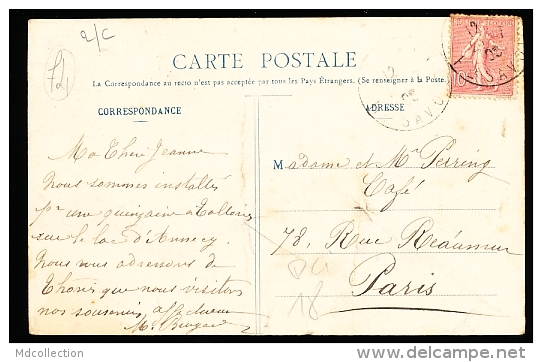 2/C
CARTE POSTALE
La Correspondance au recto n'est pas acceptée par tous les Pays Étrangers. (Se renseigner à la Poste.)
CORRESPONDANCE
ADRESSE
Ma Chère Jeanne
Nous sommes installés
pr une quinzaine à Talloires
sur le lac d'Annecy.
Nous vous adressons de
Thônes que nous visitons
nos souvenirs affectueux
Madame et Mr Perring
Café
78, Rue Réaumur
Paris
18
Mdcollection
www.delcampe.net